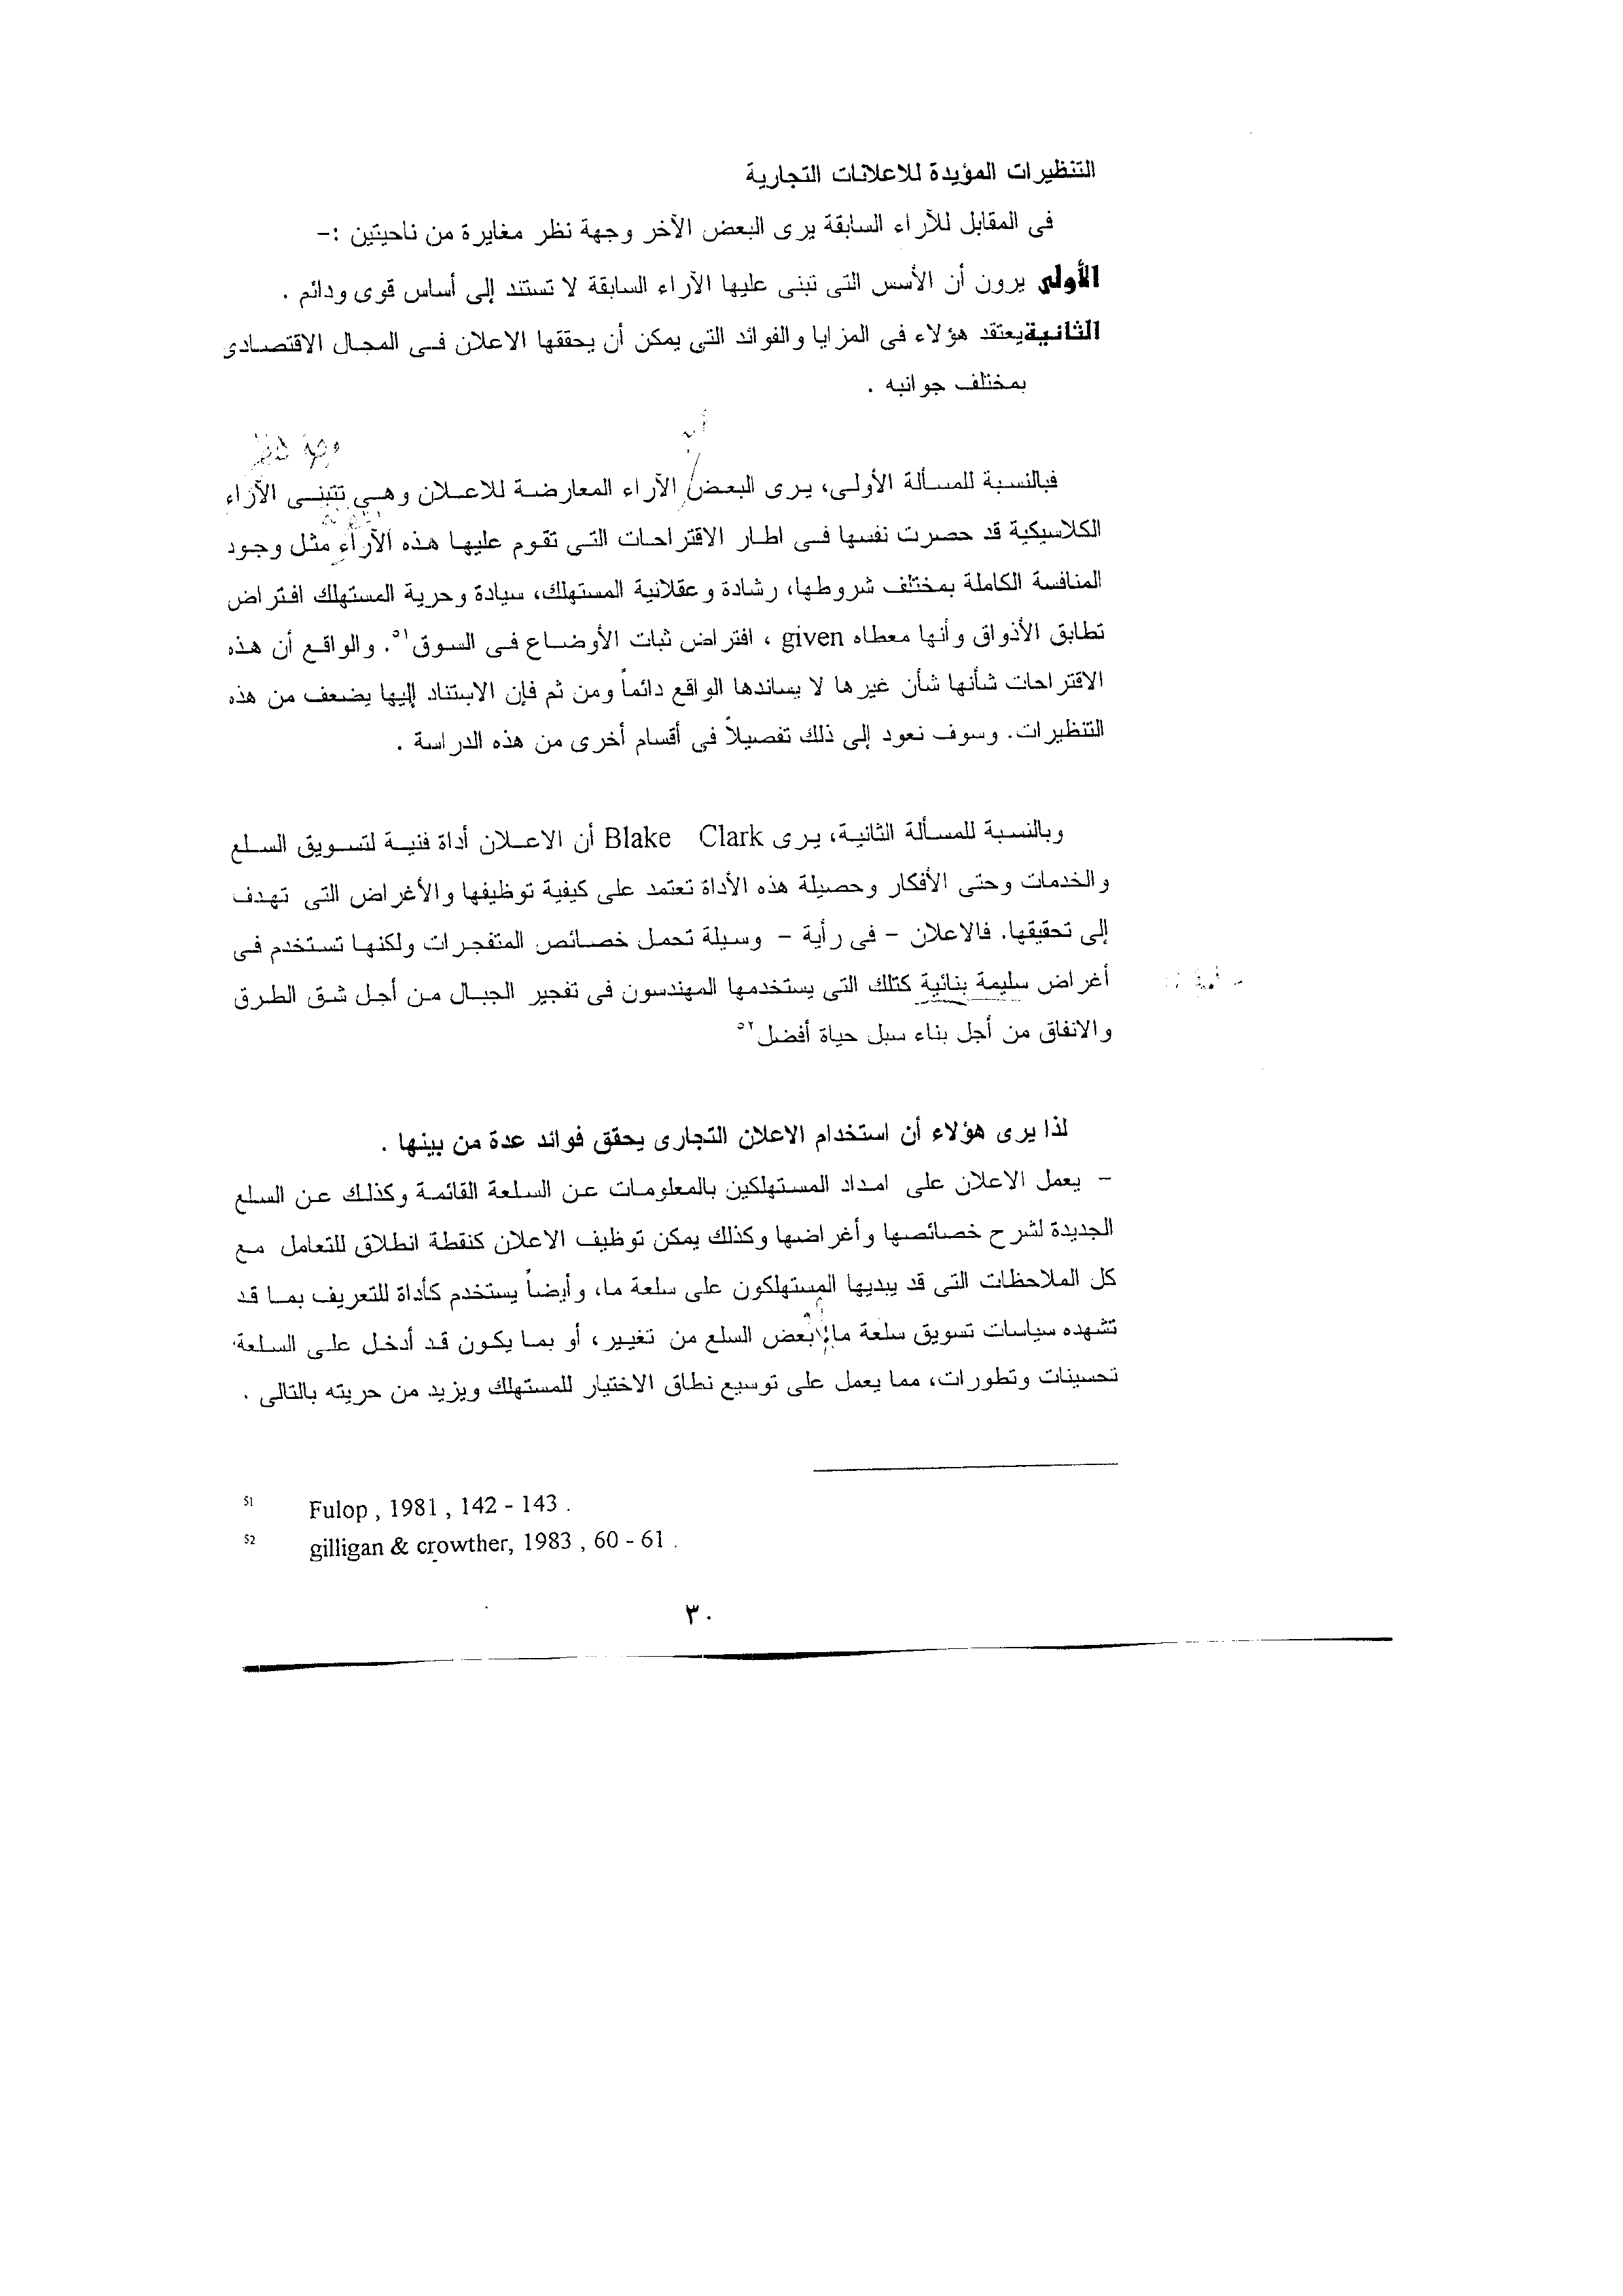 التنظيرات المؤيدة للاعلانات التجارية
فى المقابل للآراء السابقة يرى البعض الآخر وجهة نظر مغايرة من ناحيتين :-
الأولى يرون أن الأسس التى تبنى عليها الآراء السابقة لا تستند إلى أساس قوى ودائم .
الثانية يعتقد هؤلاء فى المزايا والفوائد التى يمكن أن يحققها الاعلان فى المجال الاقتصادى
بمختلف جوانبه .
وجهة نظر
فبالنسبة للمسألة الأولى، يرى البعض الآراء المعارضة للاعلان وهى تتبنى الآراء
الكلاسيكية قد حصرت نفسها فى اطار الاقتراحات التى تقوم عليها هذه الآراء مثل وجود
المنافسة الكاملة بمختلف شروطها، رشادة وعقلانية المستهلك، سيادة وحرية المستهلك افتراض
تطابق الأذواق وأنها معطاه given ، افتراض ثبات الأوضاع فى السوق٥١. والواقع أن هذه
الاقتراحات شأنها شأن غيرها لا يساندها الواقع دائماً ومن ثم فإن الاستناد إليها يضعف من هذه
التنظيرات. وسوف نعود إلى ذلك تفصيلاً فى أقسام أخرى من هذه الدراسة .
وبالنسبة للمسألة الثانية، يرى Blake Clark أن الاعلان أداة فنية لتسويق السلع
والخدمات وحتى الأفكار وحصيلة هذه الأداة تعتمد على كيفية توظيفها والأغراض التى تهدف
إلى تحقيقها. فالاعلان - فى رأية - وسيلة تحمل خصائص المتفجرات ولكنها تستخدم فى
أغراض سليمة بنائية كتلك التى يستخدمها المهندسون فى تفجير الجبال من أجل شق الطرق
والانفاق من أجل بناء سبل حياة أفضل٥٢
لذا يرى هؤلاء أن استخدام الاعلان التجارى يحقق فوائد عدة من بينها .
- يعمل الاعلان على امداد المستهلكين بالمعلومات عن السلعة القائمة وكذلك عن السلع
الجديدة لشرح خصائصها وأغراضها وكذلك يمكن توظيف الاعلان كنقطة انطلاق للتعامل مع
كل الملاحظات التى قد يبديها المستهلكون على سلعة ما، وأيضاً يستخدم كأداة للتعريف بما قد
تشهده سياسات تسويق سلعة ما بعض السلع من تغيير، أو بما يكون قد أدخل على السلعة
تحسينات وتطورات، مما يعمل على توسيع نطاق الاختيار للمستهلك ويزيد من حريته بالتالى .
51 Fulop , 1981 , 142 - 143 .
52 gilligan & crowther, 1983 , 60 - 61 .
٣٠